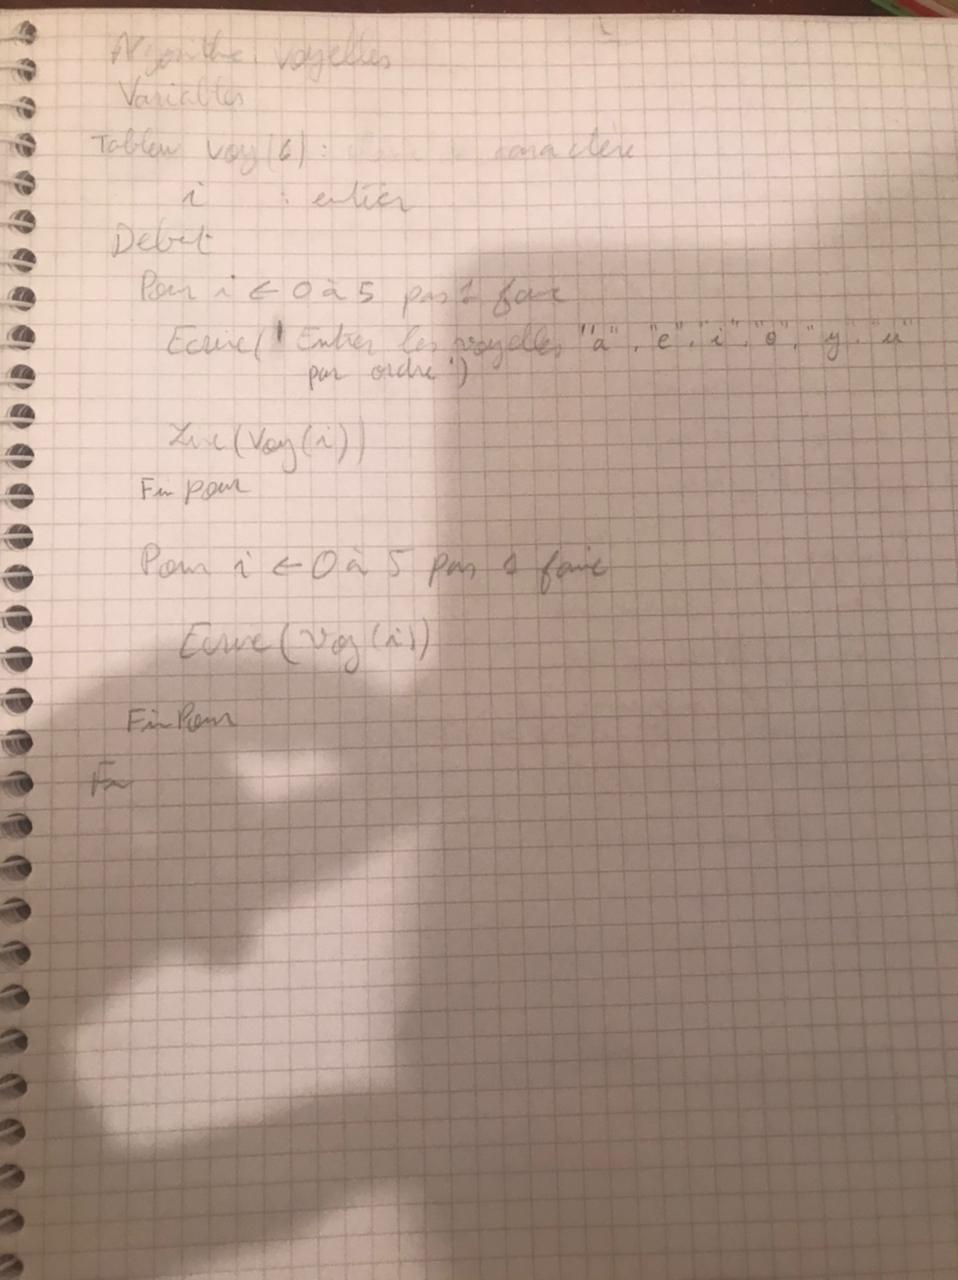 Algorithme voyelles
Variables
Tableau voy(6) : caractère
i : entier
Debut
Pour i ← 0 à 5 pas 1 faire
Ecrire(" Entrer les voyelles "a", "e", "i", "o", "y", "u"
par ordre")
Lire(Voy(i))
Fin pour
Pour i ← 0 à 5 pas 1 faire
Ecrire(voy(i))
FinPour
Fin